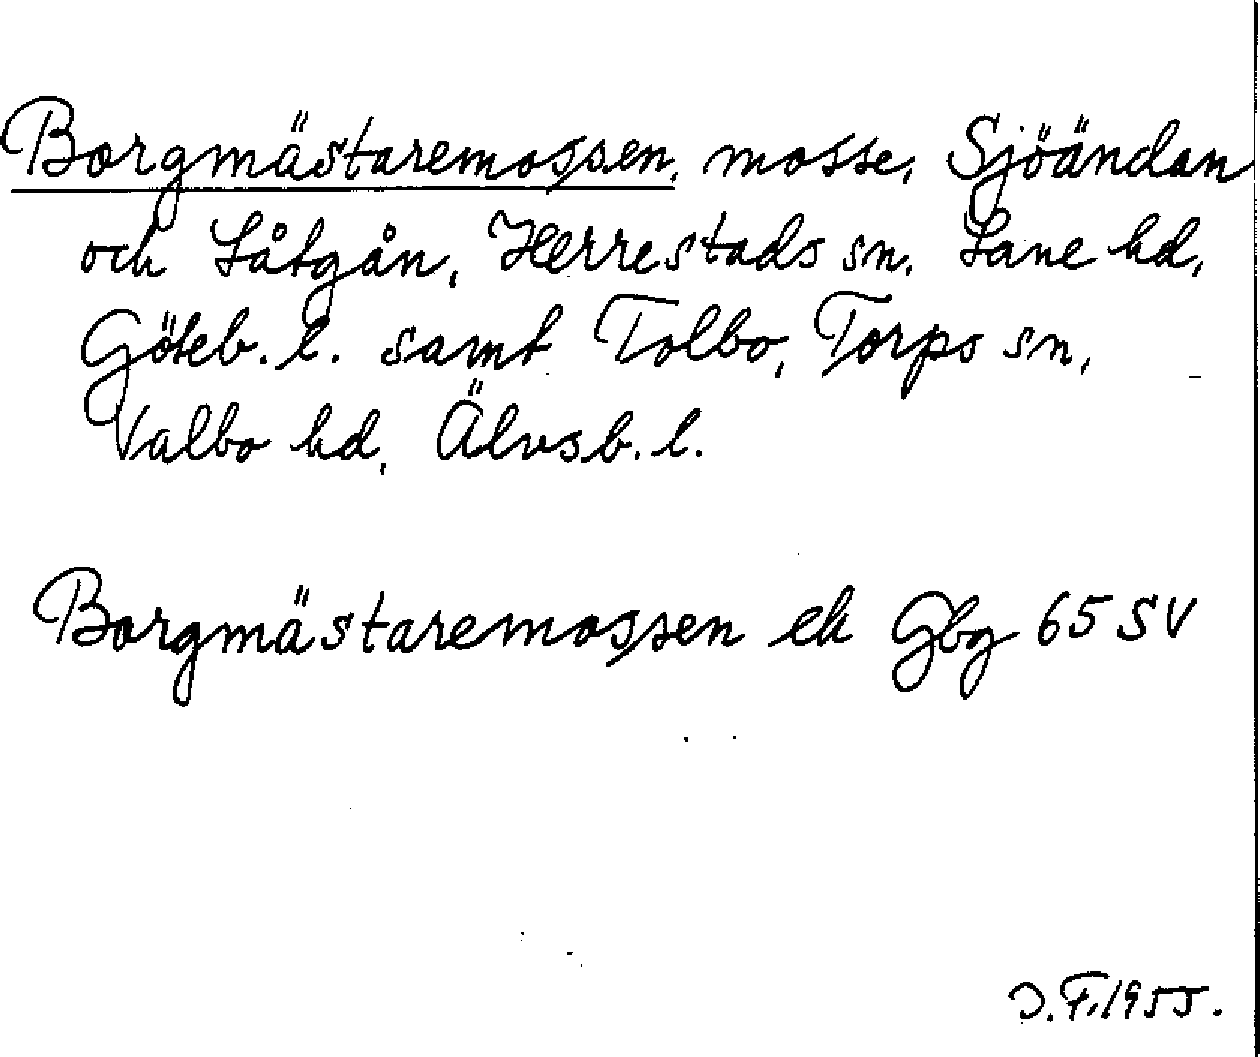 Borgmästaremossen, mosse, Sjöändan
och Låtgån, Herrestads sn, Lane hd,
Göteb. l. samt Tolbo, Torps sn,
Valbo hd, Älvsb. l.
Borgmästaremossen ek Gbg 65 SV
J.F. 1955.